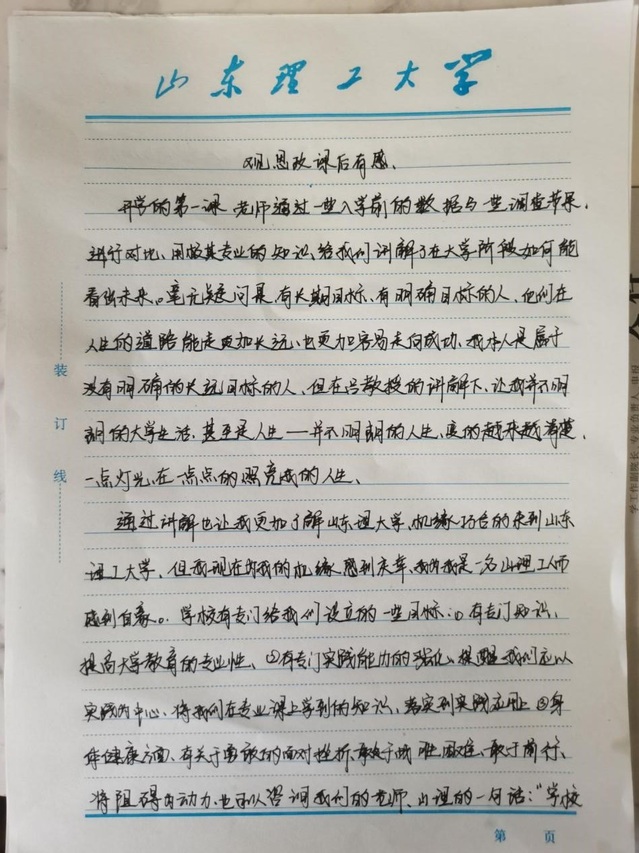 山东理工大学
观思政课后有感、
开学的第一课 老师通过一些入学前的数据与一些调查苹果,
进行对比、用极其专业的知识、给我们讲解了在大学阶段如何能
看出未来。毫无疑问是、有长期目标、有明确目标的人、他们在
人生的道路能走更加长远、也更加容易走向成功、我本人是属于
没有明确的长远目标的人、但在吕教授的讲解下、让我并不明
朗的大学生活、甚至是人生——并不明朗的人生、真的越来越
一点灯光、在一点点的照亮我的人生、
通过讲解也让我更加了解山东理大学、机缘巧合的来到山东
理工大学、但我现在为我的机缘感到庆幸、我为我是一名山理工人而
感到自豪。学校有专门给我们设立的一些目标:①有专门知识、
提高大学教育的专业性、②有专门实践能力的强化、提醒我们应以
实践为中心、将我们在专业课上学到的知识、落实到实践应用上③身
体健康方面、有关于勇敢的面对挫折、敢于战胜困难、敢于前行、
将阻碍为动力、也可以咨询我们的老师、山理的一句话:"学校
装
订
线
第 页